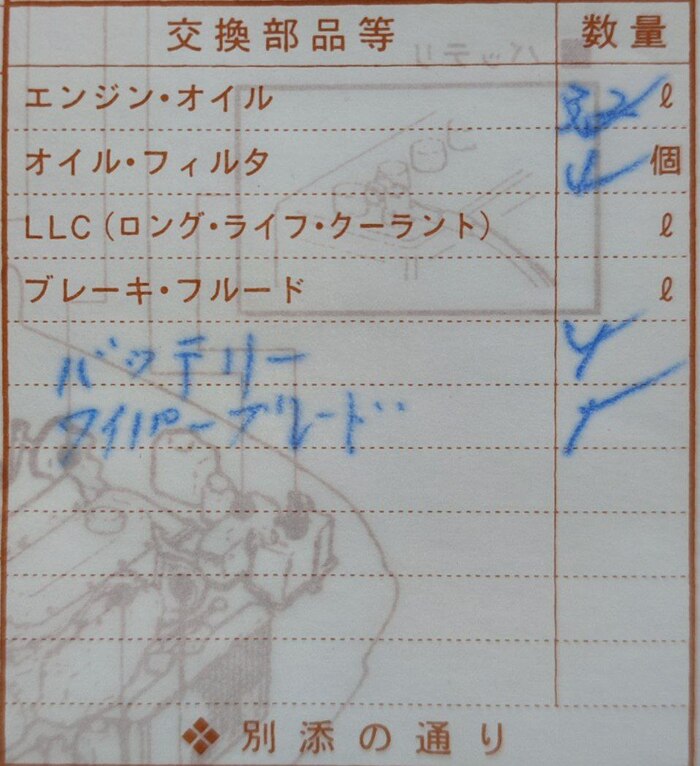 交換部品等 数量
エンジン・オイル 3.2 ℓ
オイル・フィルタ 個
LLC（ロング・ライフ・クーラント） ℓ
ブレーキ・フルード ℓ
バッテリー
ワイパーブレード
❖別添の通り